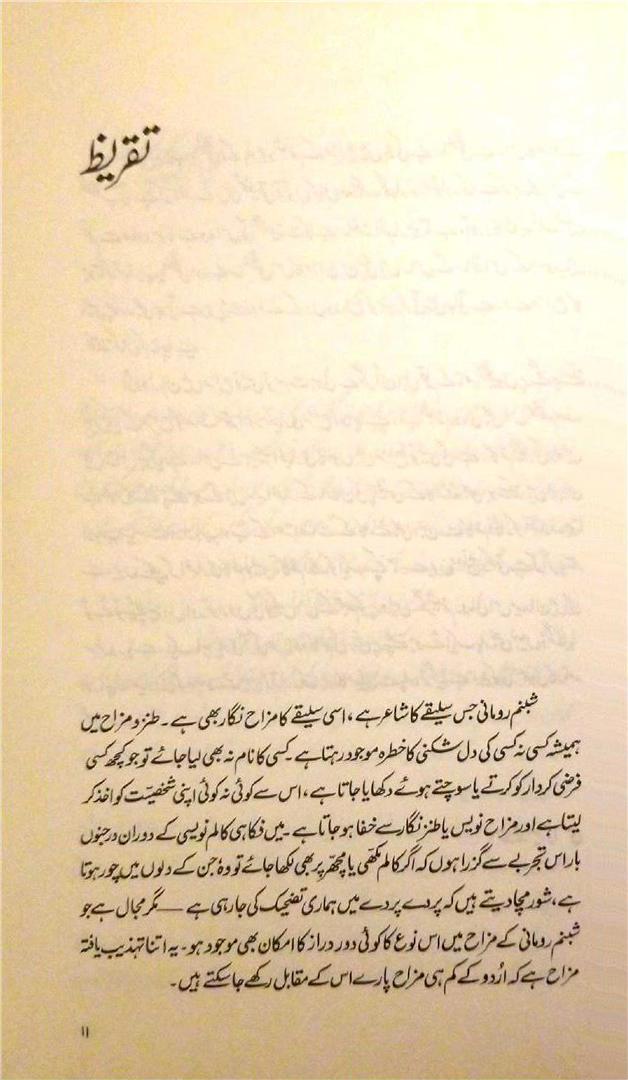 تقریظ
شبنم رومانی جس سلیقے کا شاعر ہے، اسی سلیقے کا مزاح نگار بھی ہے۔ طنز و مزاح میں
ہمیشہ کسی نہ کسی کی دل شکنی کا خطرہ موجود رہتا ہے۔ کسی کا نام نہ بھی لیا جائے تو جو کچھ کسی
فرضی کردار کو کرتے یا سوچتے ہوئے دکھایا جاتا ہے، اس سے کوئی نہ کوئی اپنی شخصیّت کو اخذ کر
لیتا ہے اور مزاح نویس یا طنز نگار سے خفا ہو جاتا ہے۔ میں فکاہی کالم نویسی کے دوران درجنوں
بار اس تجربے سے گزرا ہوں کہ اگر کالم مکھّی یا مچھّر پر بھی لکھا جائے تو وہ جن کے دلوں میں چور ہوتا
ہے، شور مچا دیتے ہیں کہ پردے پردے میں ہماری تضحیک کی جا رہی ہے — مگر مجال ہے جو
شبنم رومانی کے مزاح میں اس نوع کا کوئی دور دراز کا امکان بھی موجود ہو۔ یہ اتنا تہذیب یافتہ
مزاح ہے کہ اُردو کے کم ہی مزاح پارے اس کے مقابل رکھے جا سکتے ہیں۔
۱۱